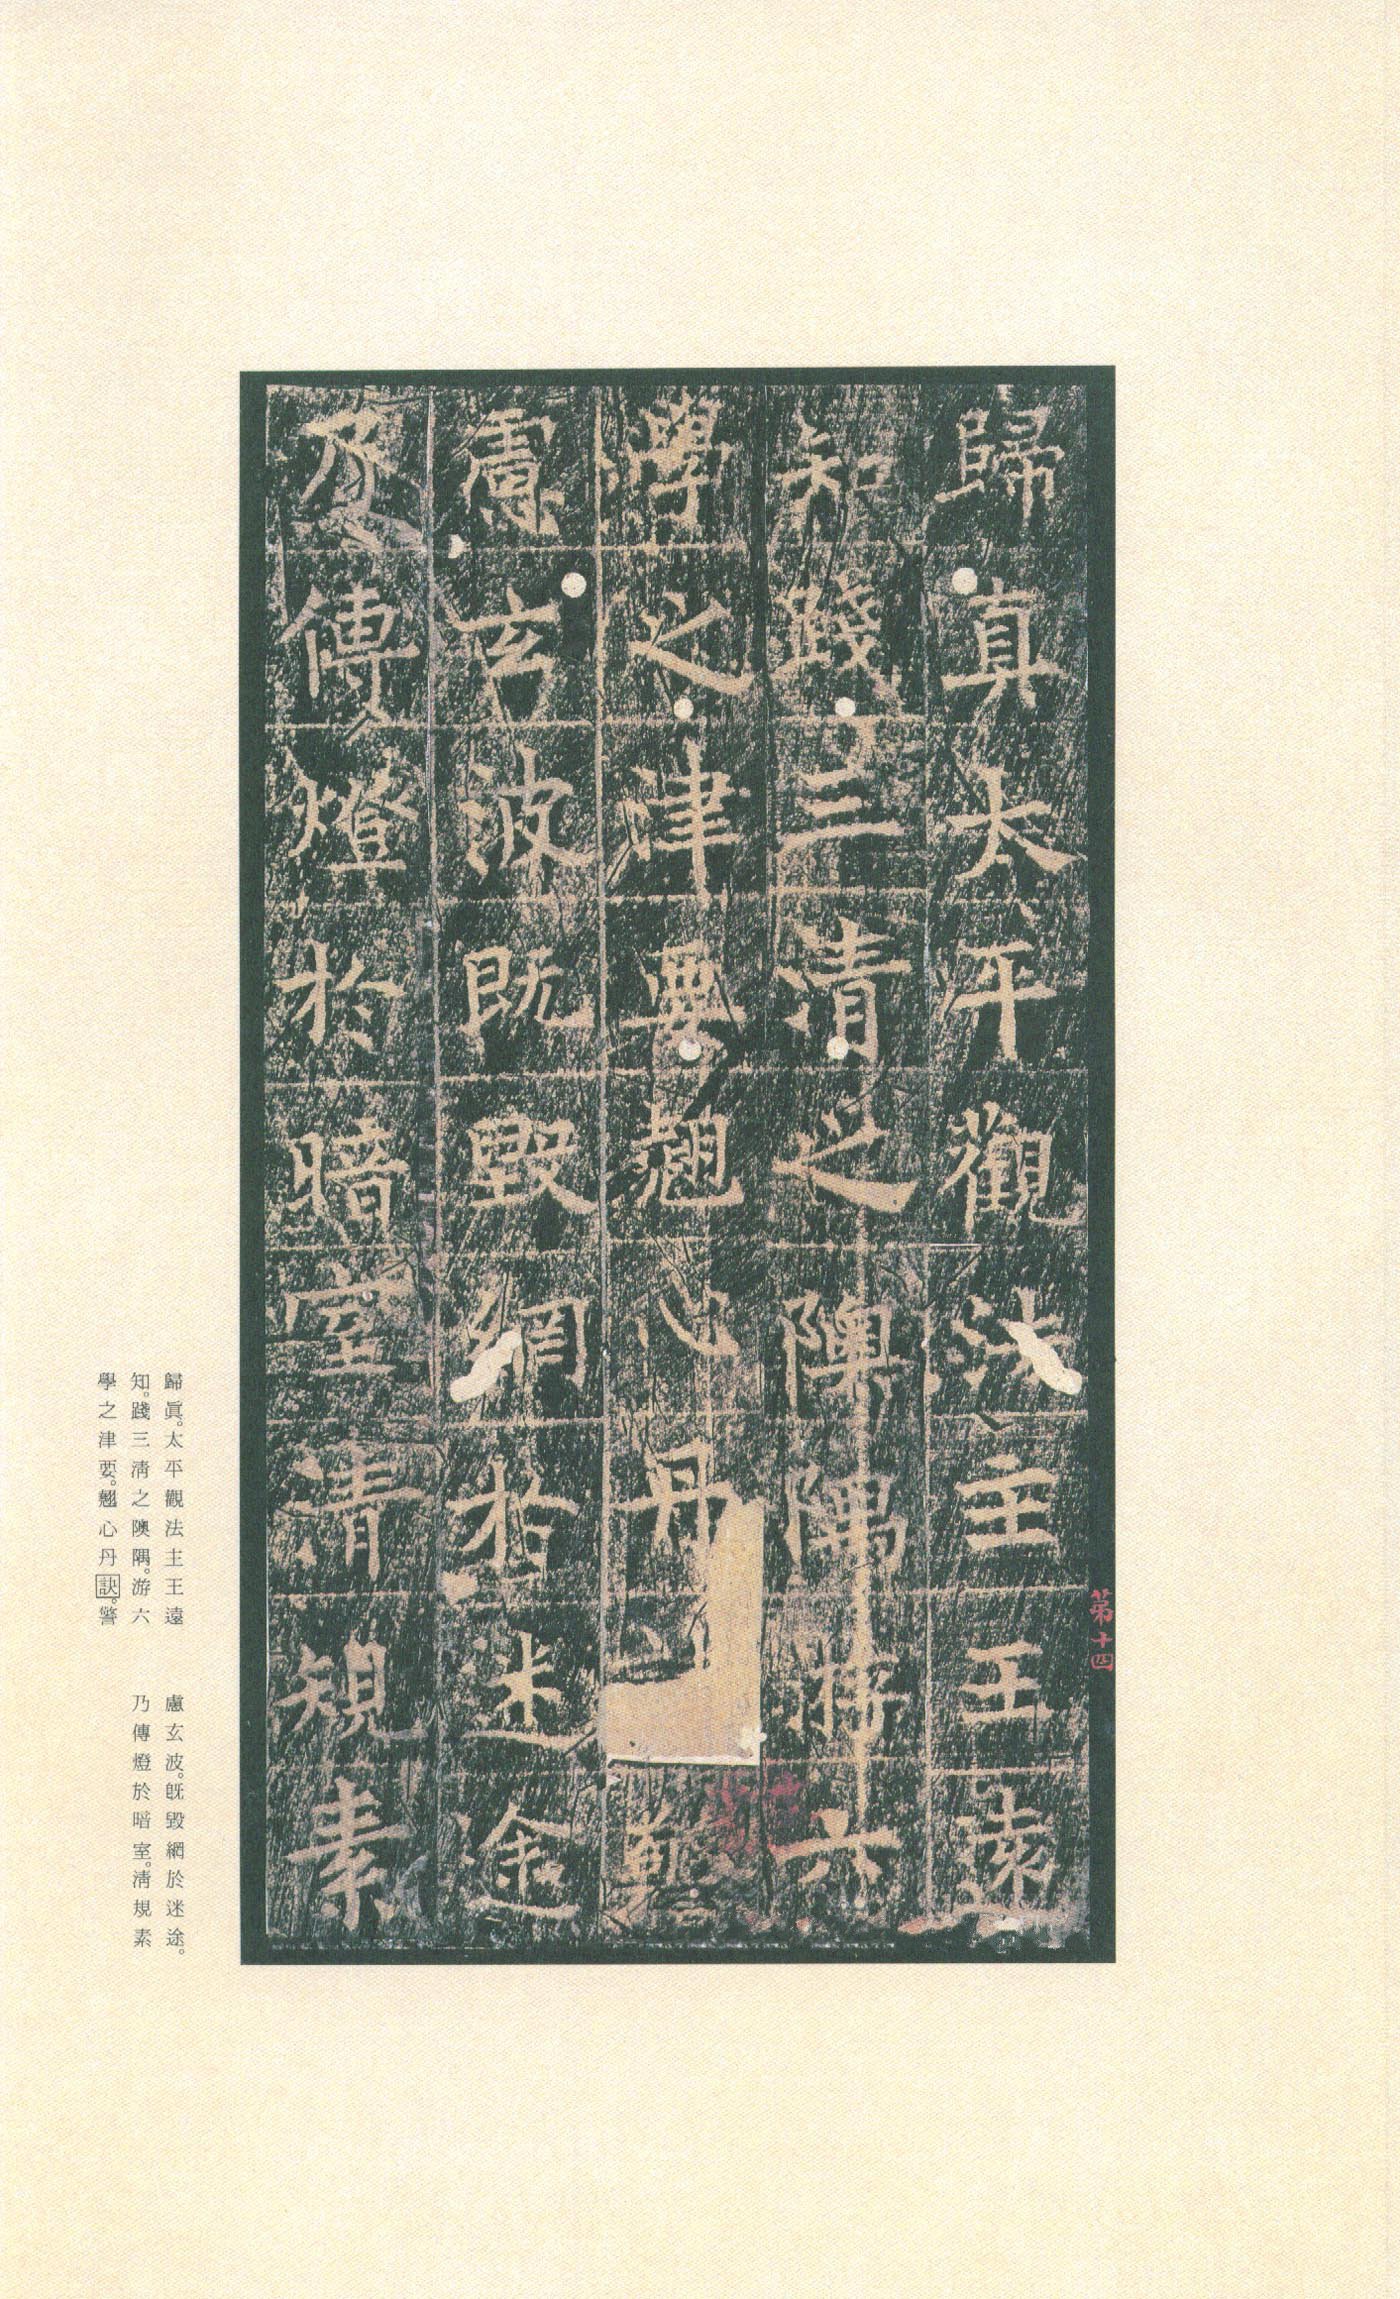 歸真太平觀法主王遠
知踐三清之隩隅游六
學之津要翹心丹
慮玄波既毀網於迷途
乃傳燈於暗室清規素
第十四
歸眞。太平觀法主王遠
知。踐三淸之隩隅。游六
學之津要。翹心丹訣。警
慮玄波。旣毀網於迷途。
乃傳燈於暗室。淸規素